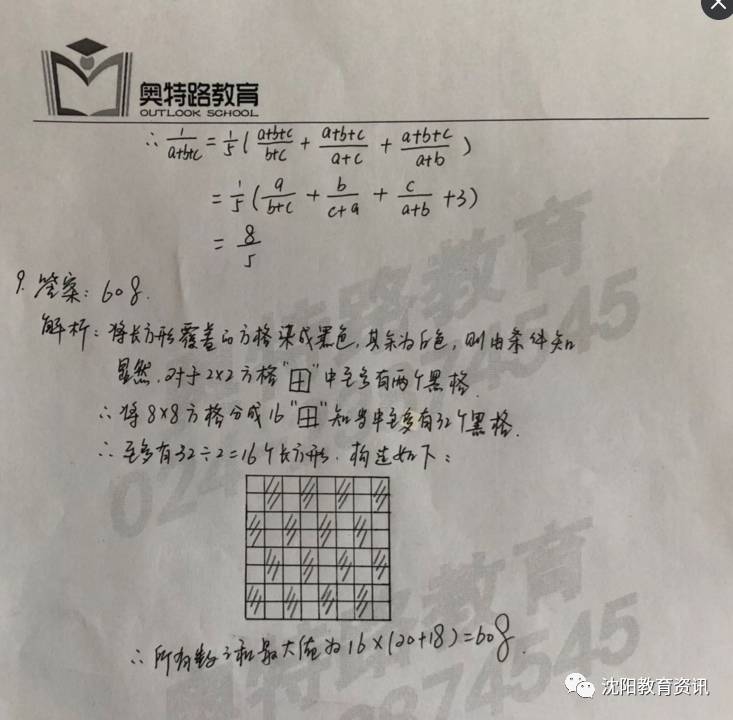 奥特路教育
OUTLOOK SCHOOL
∴ 1/(a+b+c) = 1/5 ( (a+b+c)/(b+c) + (a+b+c)/(a+c) + (a+b+c)/(a+b) )
= 1/5 ( a/(b+c) + b/(c+a) + c/(a+b) + 3 )
= 8/5
9. 答案: 608.
解析: 将长方形覆盖的方格染成黑色, 其余为白色, 则由条件知
显然, 对于2×2方格"田"中至多有两个黑格.
∴ 将8×8方格分成16"田"知当中至多有32个黑格.
∴ 至多有32÷2=16个长方形. 构造如下:
∴ 所有数之和最大值为16×(20+18)=608.
特路教育
024
874545
奥特路教育
0874545
沈阳教育资讯